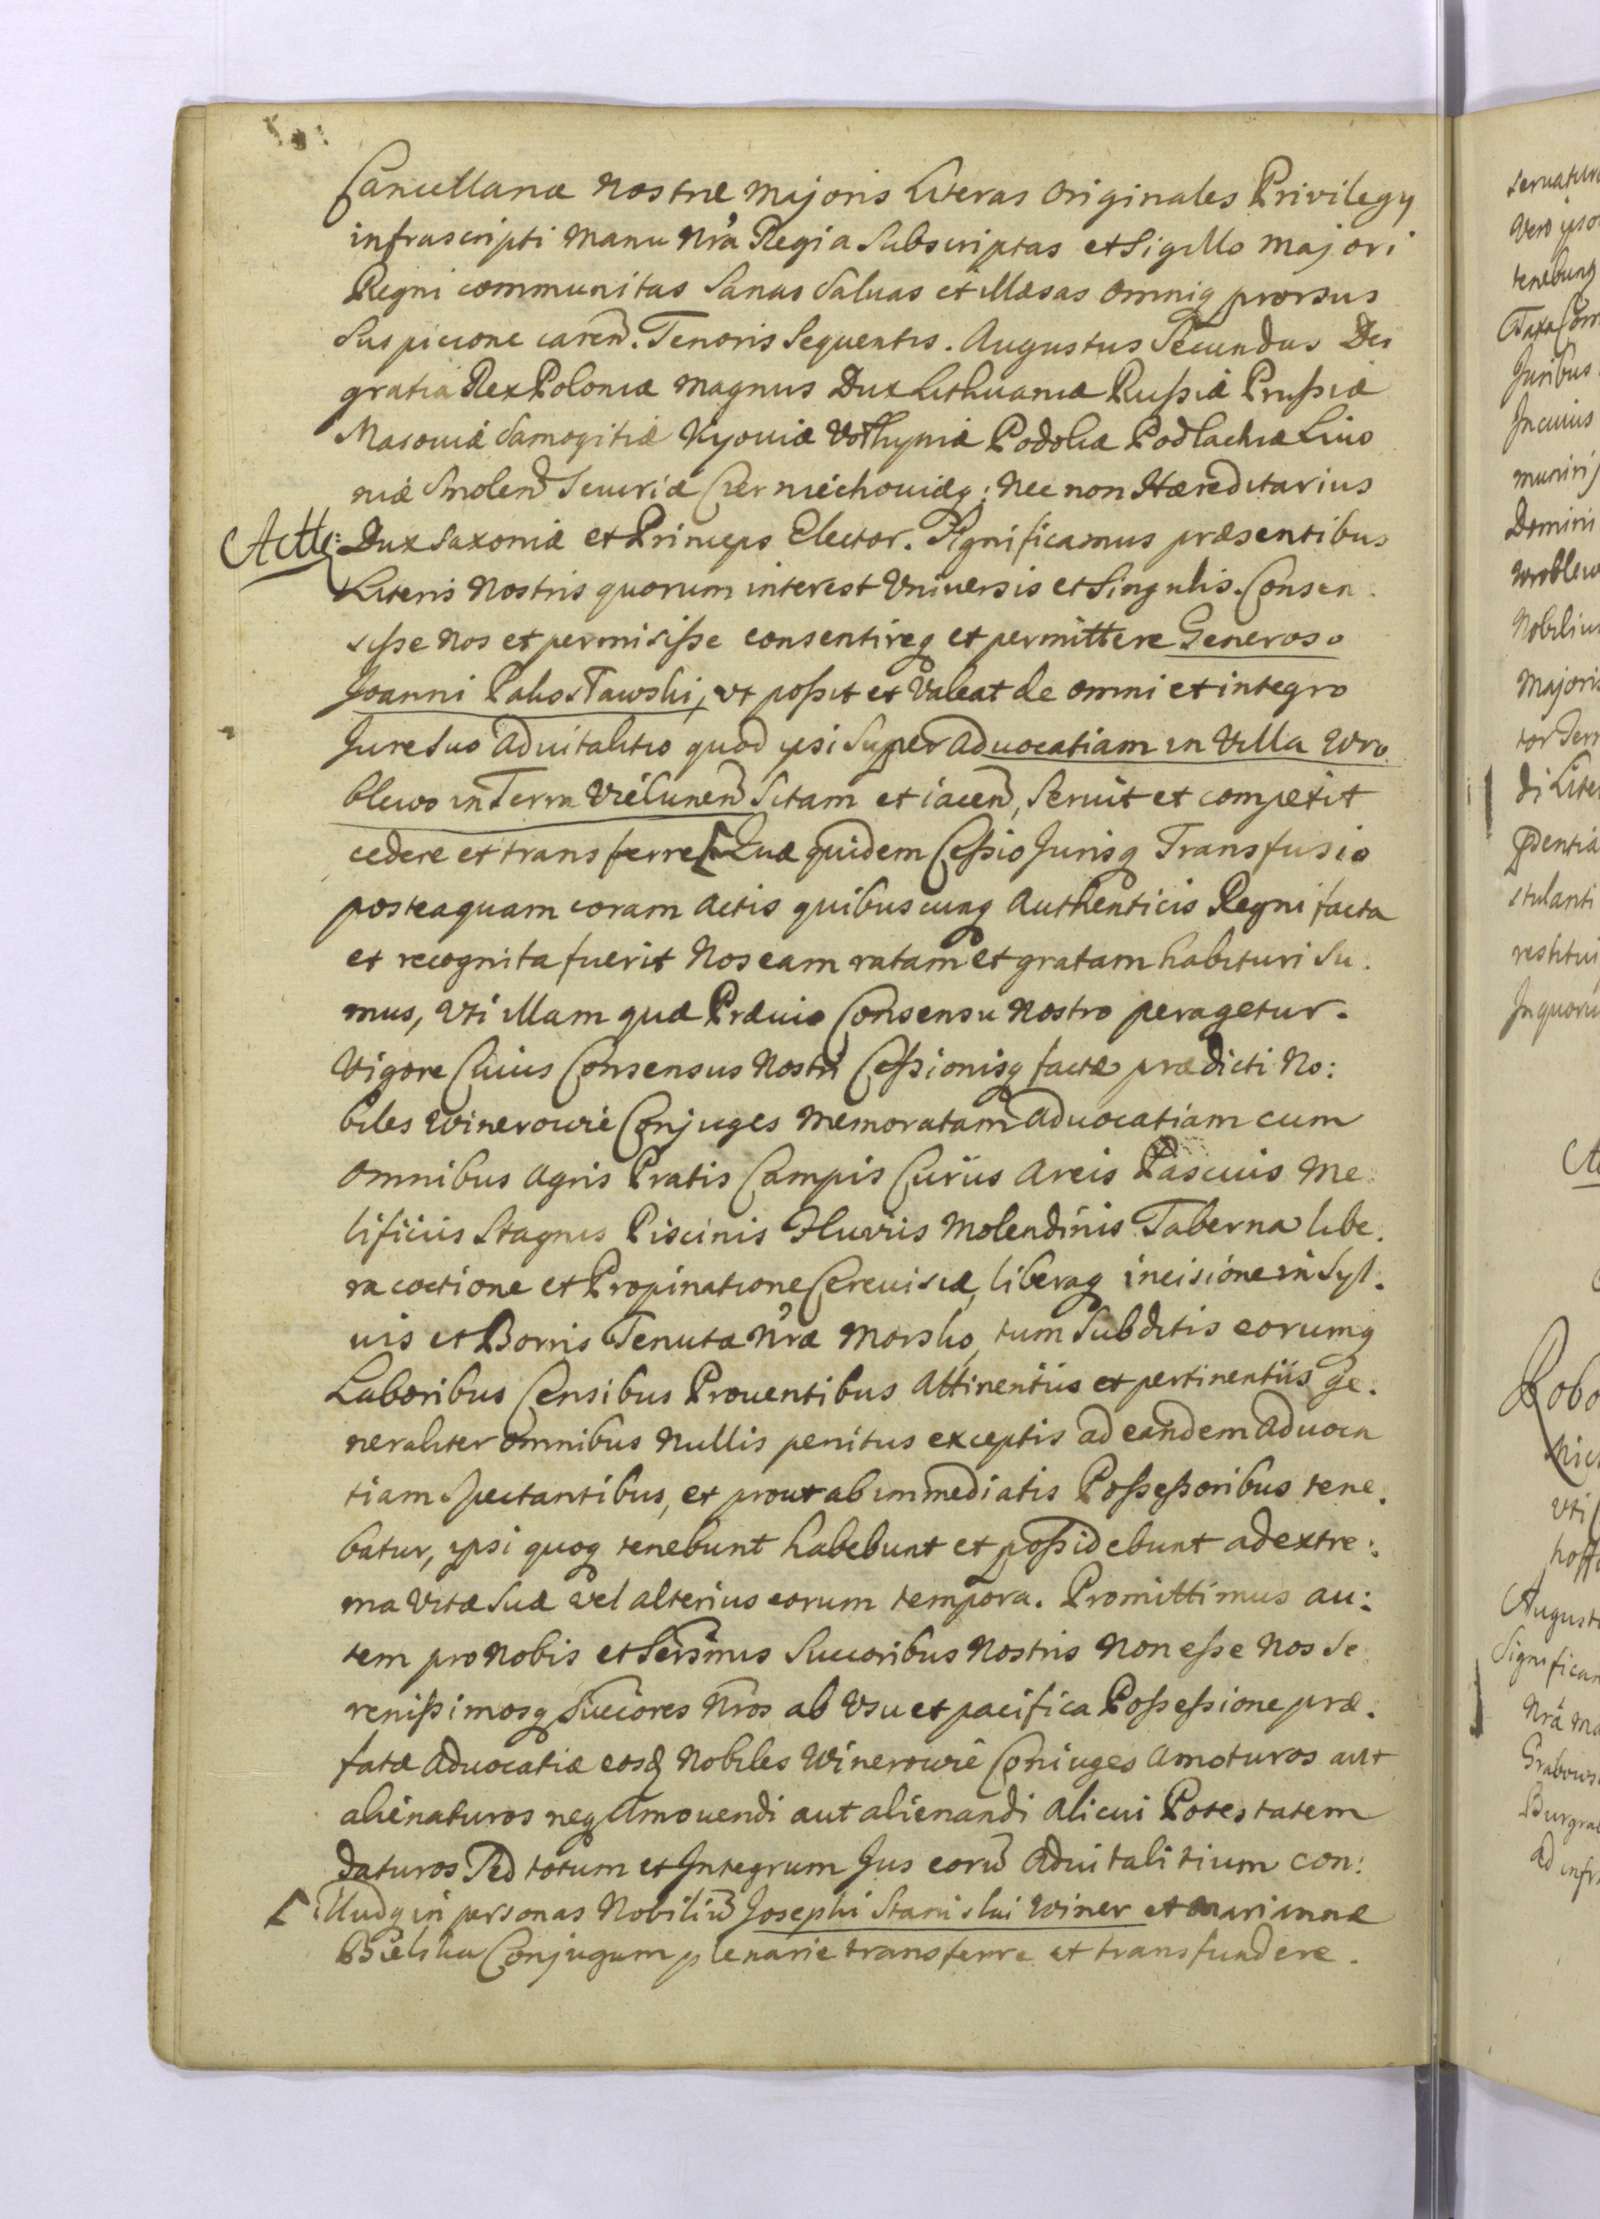 Cancellariæ Nostræ Majoris Literas Originales Privilegy
infrascripti Manu Nrã Regia Subscriptas et Sigillo majori
Regni communitas Sanas Saluas et illæsas omniq prorsus
Suspicione caren. Tenoris Sequentis. Augustus Secundus Dei
gratia Rex Poloniæ Magnus Dux Lithuaniæ Rußiæ Prußiæ
Masouiæ Samogitiæ Kyouiæ Volhyniæ Podoliæ Podlachiæ Liuo
niæ Smolen Seueriæ Czerniechouiæq; Nec non Hæreditarius
Actt: Dux Saxoniæ et Princeps Elector. Significamus præsentibus
Literis Nostris quorum interest Vniuersis et Singulis. Consen.
siße Nos et permisiße consentireq et permittere Generoso
Joanni Pakosławski, vt poßit et Valeat de omni et integro
Jure Suo aduitalitio quod ipsi Super aduocatiam in Villa Wro.
blewo in Terra Vielunen Sitam et iacen, Seruit et competit
cedere et transferre Quæ quidem Ceßio Jurisq Transfusio
posteaquam coram Actis quibuscunq Authenticis Regni facta
et recognita fuerit Nos eam ratam et gratam habituri Su.
mus, Vti illam quæ Præuio Consensu Nostro peragetur.
Vigore Cuius Consensus Nostri Ceßionisq factæ prædicti No:
biles Winerowie Conjuges Memoratam aduocatiam cum
Omnibus Agris Pratis Campis Curiis Areis Pascuis Me
lificiis Stagnis Piscinis Fluviis Molendinis Taberna libe.
ra coctione et Propinatione Cereuisiæ, liberaq incisione in Syl.
uis et Borris Tenutæ Nræ Morsko, tum Subditis eorumq
Laboribus Censibus Prouentibus Attinentiis et pertinentiis ge.
neraliter omnibus Nullis penitus exceptis ad eandem aduoca
tiam Spectantibus, et prout ab immediatis Poßeßoribus tene.
batur, ipsi quoq tenebunt habebunt et poßidebunt ad extre:
ma Vitæ Suæ vel alterius eorum tempora. Promittimus au:
tem pro Nobis et Serẽmis Succoribus Nostris Non eße Nos Se
renißimosq Succores Nros ab Vsu et pacifica Poßeßione præ.
fatæ aduocatiæ eosd Nobiles Winerowie Coniuges Amoturos aut
alienaturos neq Amouendi aut alienandi Alicui Potestatem
daturos Sed totum et Integrum Jus eorũ aduitalitium con:
illudq in personas Nobiliũ Josephi Stanislai Winer et Mariannæ
Bielska Conjugum plenarie transferre et transfundere.